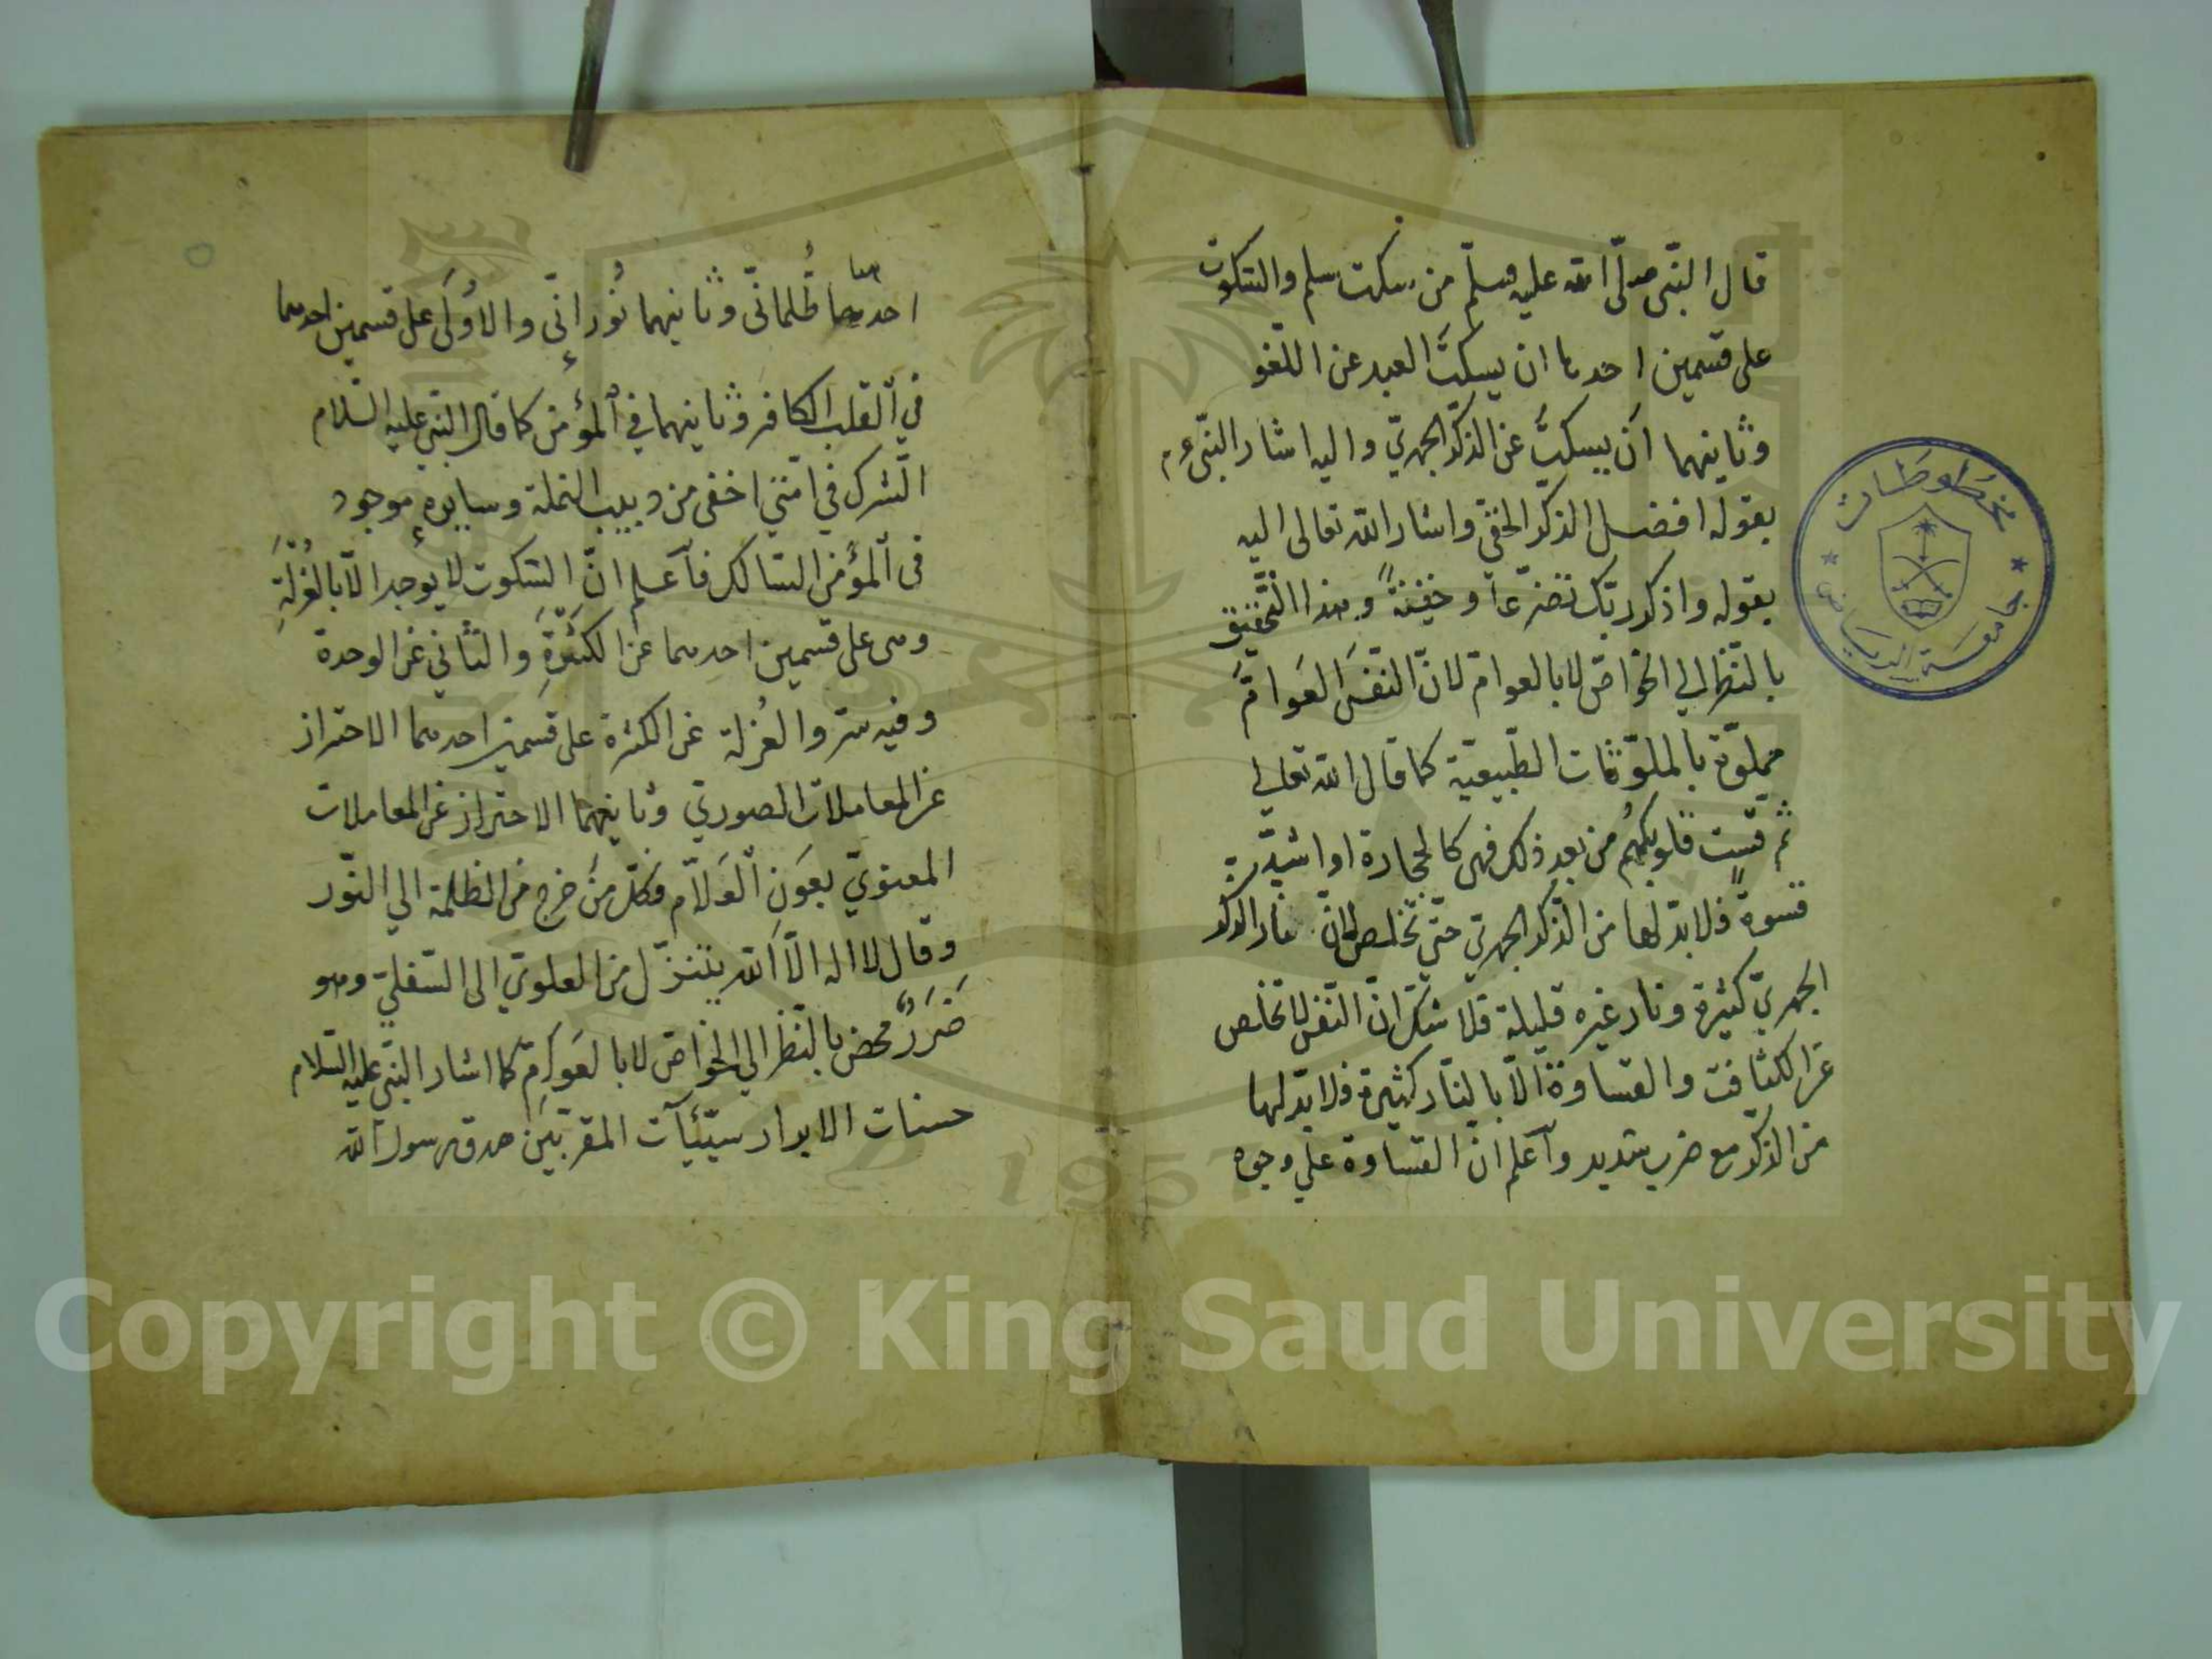 قال النّبي صلّى الله عليه وسلّم من سكت سلم والسّكوت
على قسمين احدهما ان يسكتَ العبد عن اللّغو
وثانيهما اَن يسكتَ عن الذكّر الجهريّ واليه اشار النبّي ءم
بقوله افضل الذكّر الخفّي واشار الله تعالى اليه
بقوله واذكر ربّك تضرّعاً وخيفةً وهذا التّحقيق
بالنّظر الي الخواصّ لا بالعوامّ لانّ النّفسَ العَوامّ
مملوّة بالملوّثات الطّبيعيّة كما قال الله تعالي
ثمّ قست قلوبكم من بعد ذلك فهى كالحجارة او اشدّ
قسوةً فلابدّ لها من الذّكر الجهريّ حتّي تخلص لانّ نار الذكر
الجهريّ كثيرة ونار غيره قليلة فلا شكّ انّ النّفس لا تخلص
عن الكثافت والقساوة الّا بالنّار كثيرة فلا بدّ لها
من الذكّر مع ضرب شديد وآعلم انّ القساوة علي وجوه
احدهما ظُلمانّي وثانيهما نُورانّي والاُولَي على قسمين احدهما
في اَلقلب الكافر وثانيهما في اَلمؤمن كما قال النبّي عليه السّلام
الشّرك في امّتي اخفى من دبيب النملة وسايره موجود
فى اَلمؤمن السّالك فآعلم انّ السّكوت لا يوجد الّا بالعُزلَةِ
وهى على قسمين احدهما عن الكَثرَةِ والثّاني عن الوحدة
وفيه سرّ والعُزلة عن الكثرة على قسمين احدهما الاحتراز
عن المعاملات الصوريّ وثانيهما الاحتراز عن المعاملات
المعنويّ بعَون اَلعَلّام فكلّ مَن خرج من الظلمة الي النّور
وقال لا اله الّا الله يتنزّل من العلويّ الى السّفليّ وهو
ضَرَرٌ محض بالنّظر الي الخواصّ لا بالعَوامّ كما اشار النبّي عليه السّلام
حسنات الابرار سيّئآت المقرّبَين صدق رسول الله
مخطوطات
جامعة الرياض
1957
Copyright © King Saud University